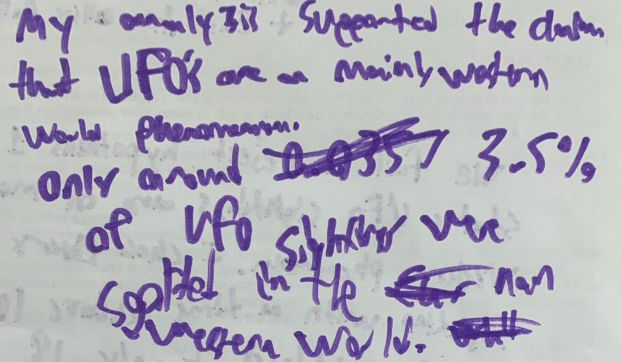 My analysis supported the claim
that UFO's are an mainly western
World phenomenon.
only around 0.0357 3.5%
of UFO sightings were
spotted in the non
western world.